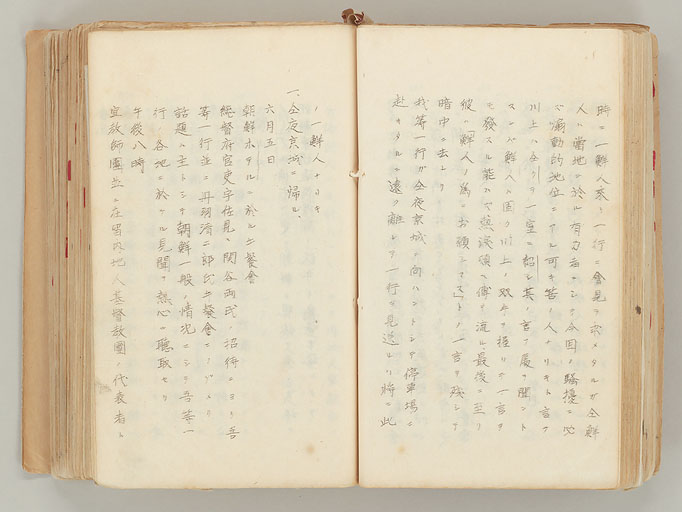 時ニ一鮮人来リ一行ニ會見ヲ求メタルガ全鮮
人ハ當地ニ於ル有力者ニシテ今回ノ騒擾ニ必
ズ煽動的地位ニアル可キ筈ノ人ナリキト言フ
川上ハ全クヲ一室ニ招シ其ノ言フ處ヲ聞ント
スレバ鮮人ハ固ク川上ノ双手ヲ握リテ一言ヲ
モ發スル能ハズ熱涙頬ヲ傳テ流ル、最後ニ至リ
彼ハ「鮮人ノ為ニお頼みします」トノ一言ヲ残シテ
暗中ニ去レリ
我等一行ガ全夜京城ニ向ハントシテ停車場ニ
赴キタルニ遠ク離レテ一行ヲ見送レリ將ニ此
ノ一鮮人ナリキ
一、全夜京城ニ帰ル、
六月五日
朝鮮ホテルニ於ル午餐會
總督府官吏宇佐見、関谷両氏ノ招待ニヨリ吾
等一行並ニ丹羽清二郎氏午餐會ニノゾメリ
話題ハ主トシテ朝鮮一般ノ情況ニシテ吾等一
行ノ各地ニ於ケル見聞ヲ熱心ニ聴取セリ
午後八時
宣教師團並ニ在留内地人基督教團ノ代表者ト